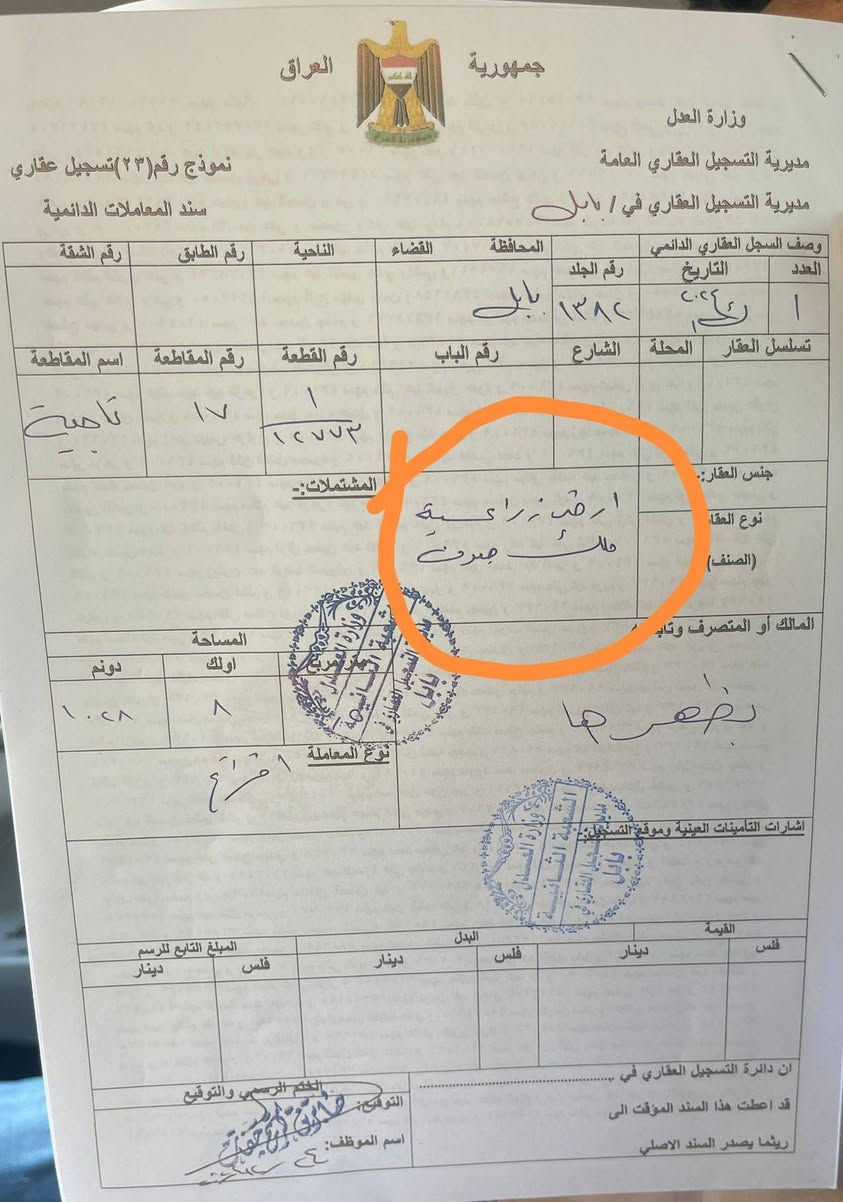 جمهورية العراق
وزارة العدل
مديرية التسجيل العقاري العامة
نموذج رقم(٢٣)تسجيل عقاري
مديرية التسجيل العقاري في / بابل
سند المعاملات الدائمية
وصف السجل العقاري الدائمي
المحافظة
القضاء
الناحية
رقم الطابق
رقم الشقة
العدد
التاريخ
رقم الجلد
١
٢٠٢٤
١٣٨٢
بابل
تسلسل العقار
المحلة
الشارع
رقم الباب
رقم القطعة
رقم المقاطعة
اسم المقاطعة
١
١٢٧٧٣
١٧
تاجية
جنس العقار:ـ
المشتملات:ـ
نوع العقار
(الصنف)
ارض زراعية
ملك صرف
المالك أو المتصرف
المساحة
متر مربع
اولك
دونم
٨
١٠٢٨
بظهرها
نوع المعاملة
افراز
وزارة العدل
مديرية التسجيل العقاري في
بابل
الشعبة الثانية
اشارات التأمينات العينية وموقع التسجيل:ـ
وزارة العدل
مديرية التسجيل العقاري في
بابل
الشعبة الثانية
القيمة
البدل
المبلغ التابع للرسم
فلس
دينار
فلس
دينار
فلس
دينار
ان دائرة التسجيل العقاري في ........................
قد اعطت هذا السند المؤقت الى
ريثما يصدر السند الاصلي
الختم الرسمي والتوقيع
التوقيع:
اسم الموظف: